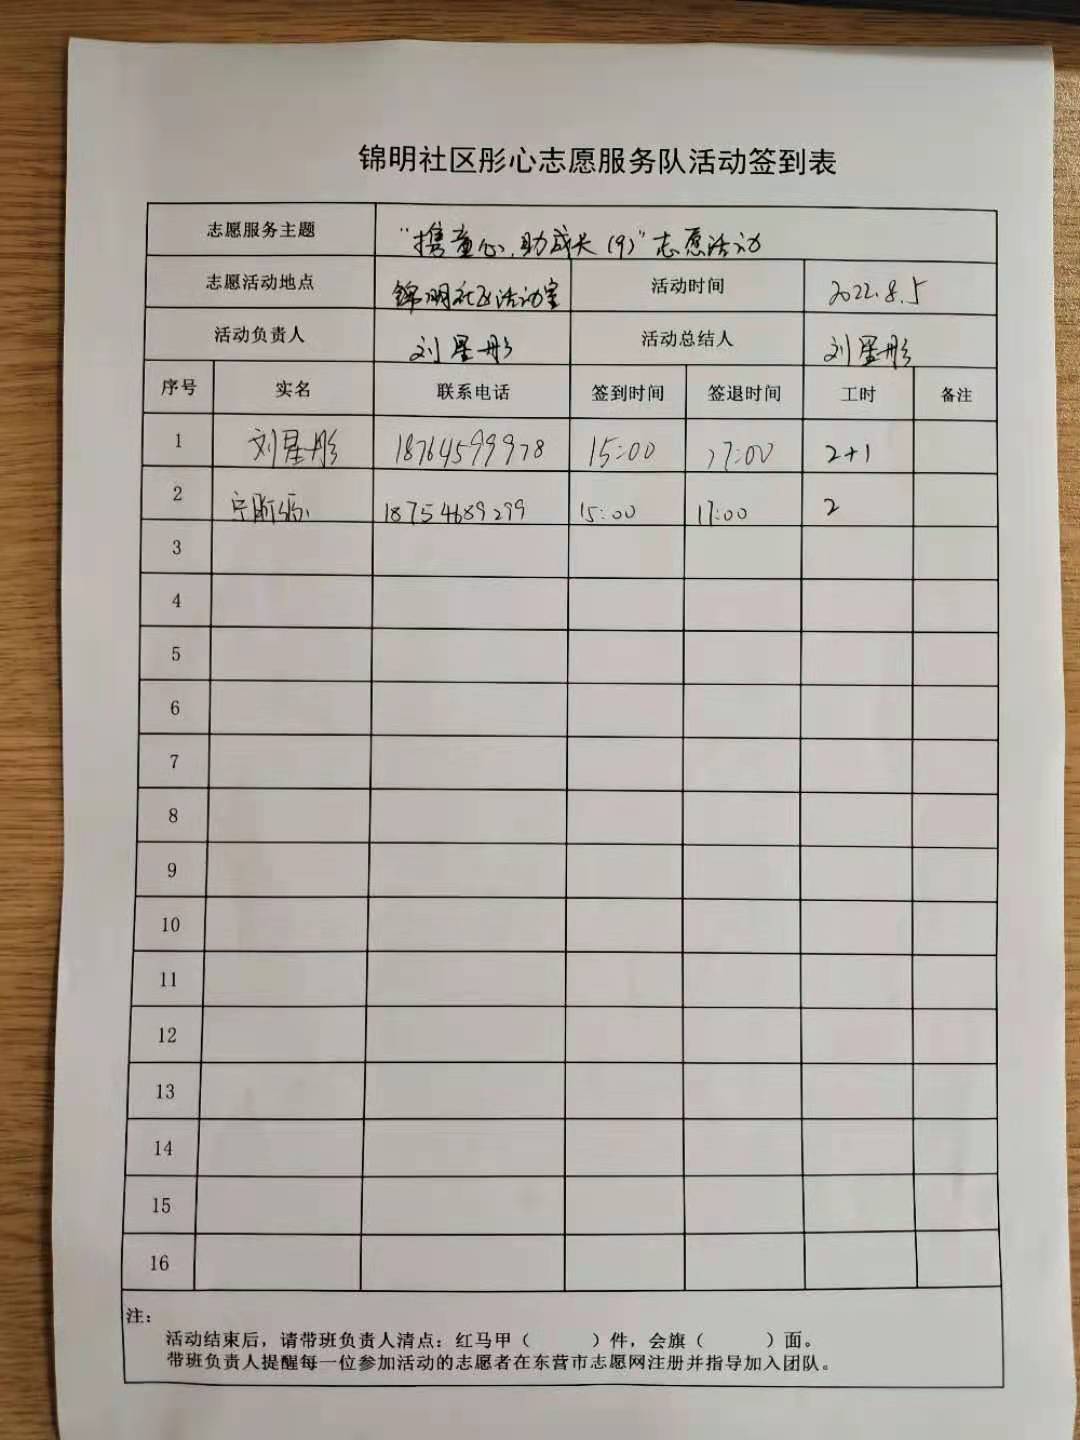 锦明社区彤心志愿服务队活动签到表
志愿服务主题 “携童心,助成长(9)”志愿活动
志愿活动地点 锦明社区活动室 活动时间 2022.8.5
活动负责人 刘星彤 活动总结人 刘星彤
序号 实名 联系电话 签到时间 签退时间 工时 备注
1 刘星彤 18764599978 15:00 17:00 2+1
2 宁 18754689299 15:00 17:00 2
3
4
5
6
7
8
9
10
11
12
13
14
15
16
注:
活动结束后,请带班负责人清点:红马甲( )件,会旗( )面。
带班负责人提醒每一位参加活动的志愿者在东营市志愿网注册并指导加入团队。